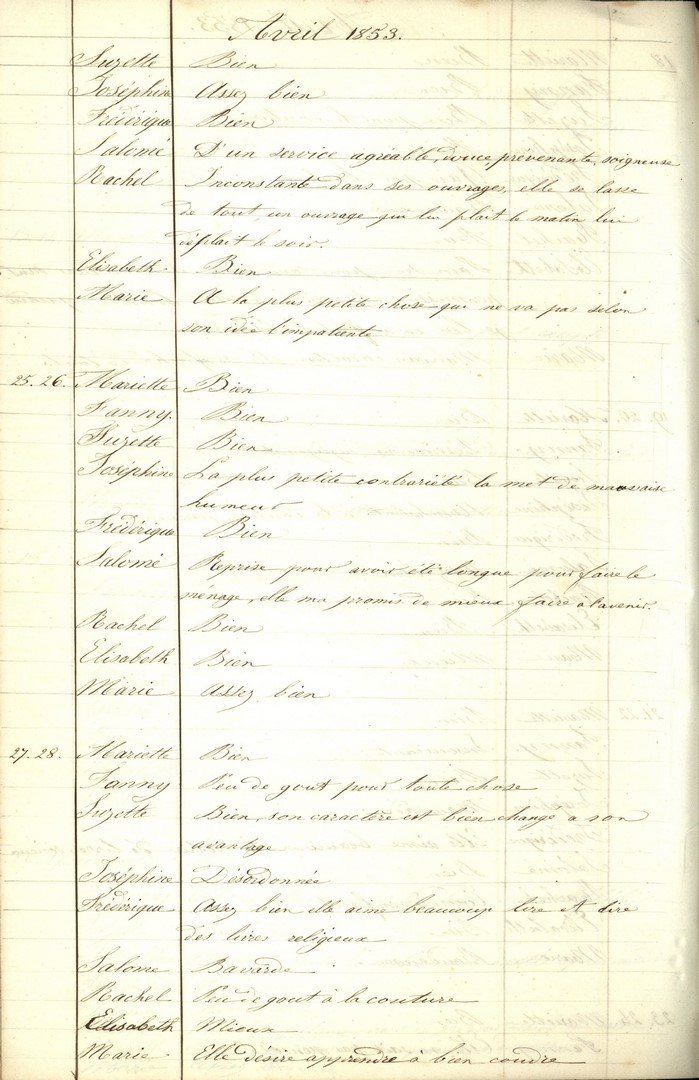 Avril 1853.
Suzette Bien
Joséphine Assez bien
Frédérique Bien
Salomé D'un service agréable, douce, prévenante, soigneuse
Rachel Inconstante dans ses ouvrages, elle se lasse
de tout, un ouvrage qui lui plait le matin lui
déplait le soir.
Elisabeth Bien
Marie A la plus petite chose que ne va pas selon
son idée l'impatiente
25. 26. Mariette Bien
Fanny. Bien
Suzette Bien
Joséphine La plus petite contrariété la met de mauvaise
humeur
Frédérique Bien
Salomé Reprise pour avoir été longue pour faire le
ménage, elle ma promis de mieux faire à l'avenir.
Rachel Bien
Elisabeth Bien
Marie Assez bien
27. 28. Mariette Bien
Fanny Peu de gout pour toute chose
Suzette Bien, son caractère est bien changé a son
avantage
Joséphine Désordonnée
Frédérique Assez bien elle aime beaucoup lire et lire
des livres religieux
Salome Bavarde
Rachel Peu de gout à la couture
Elisabeth Mieux
Marie Elle désire apprendre à bien coudre